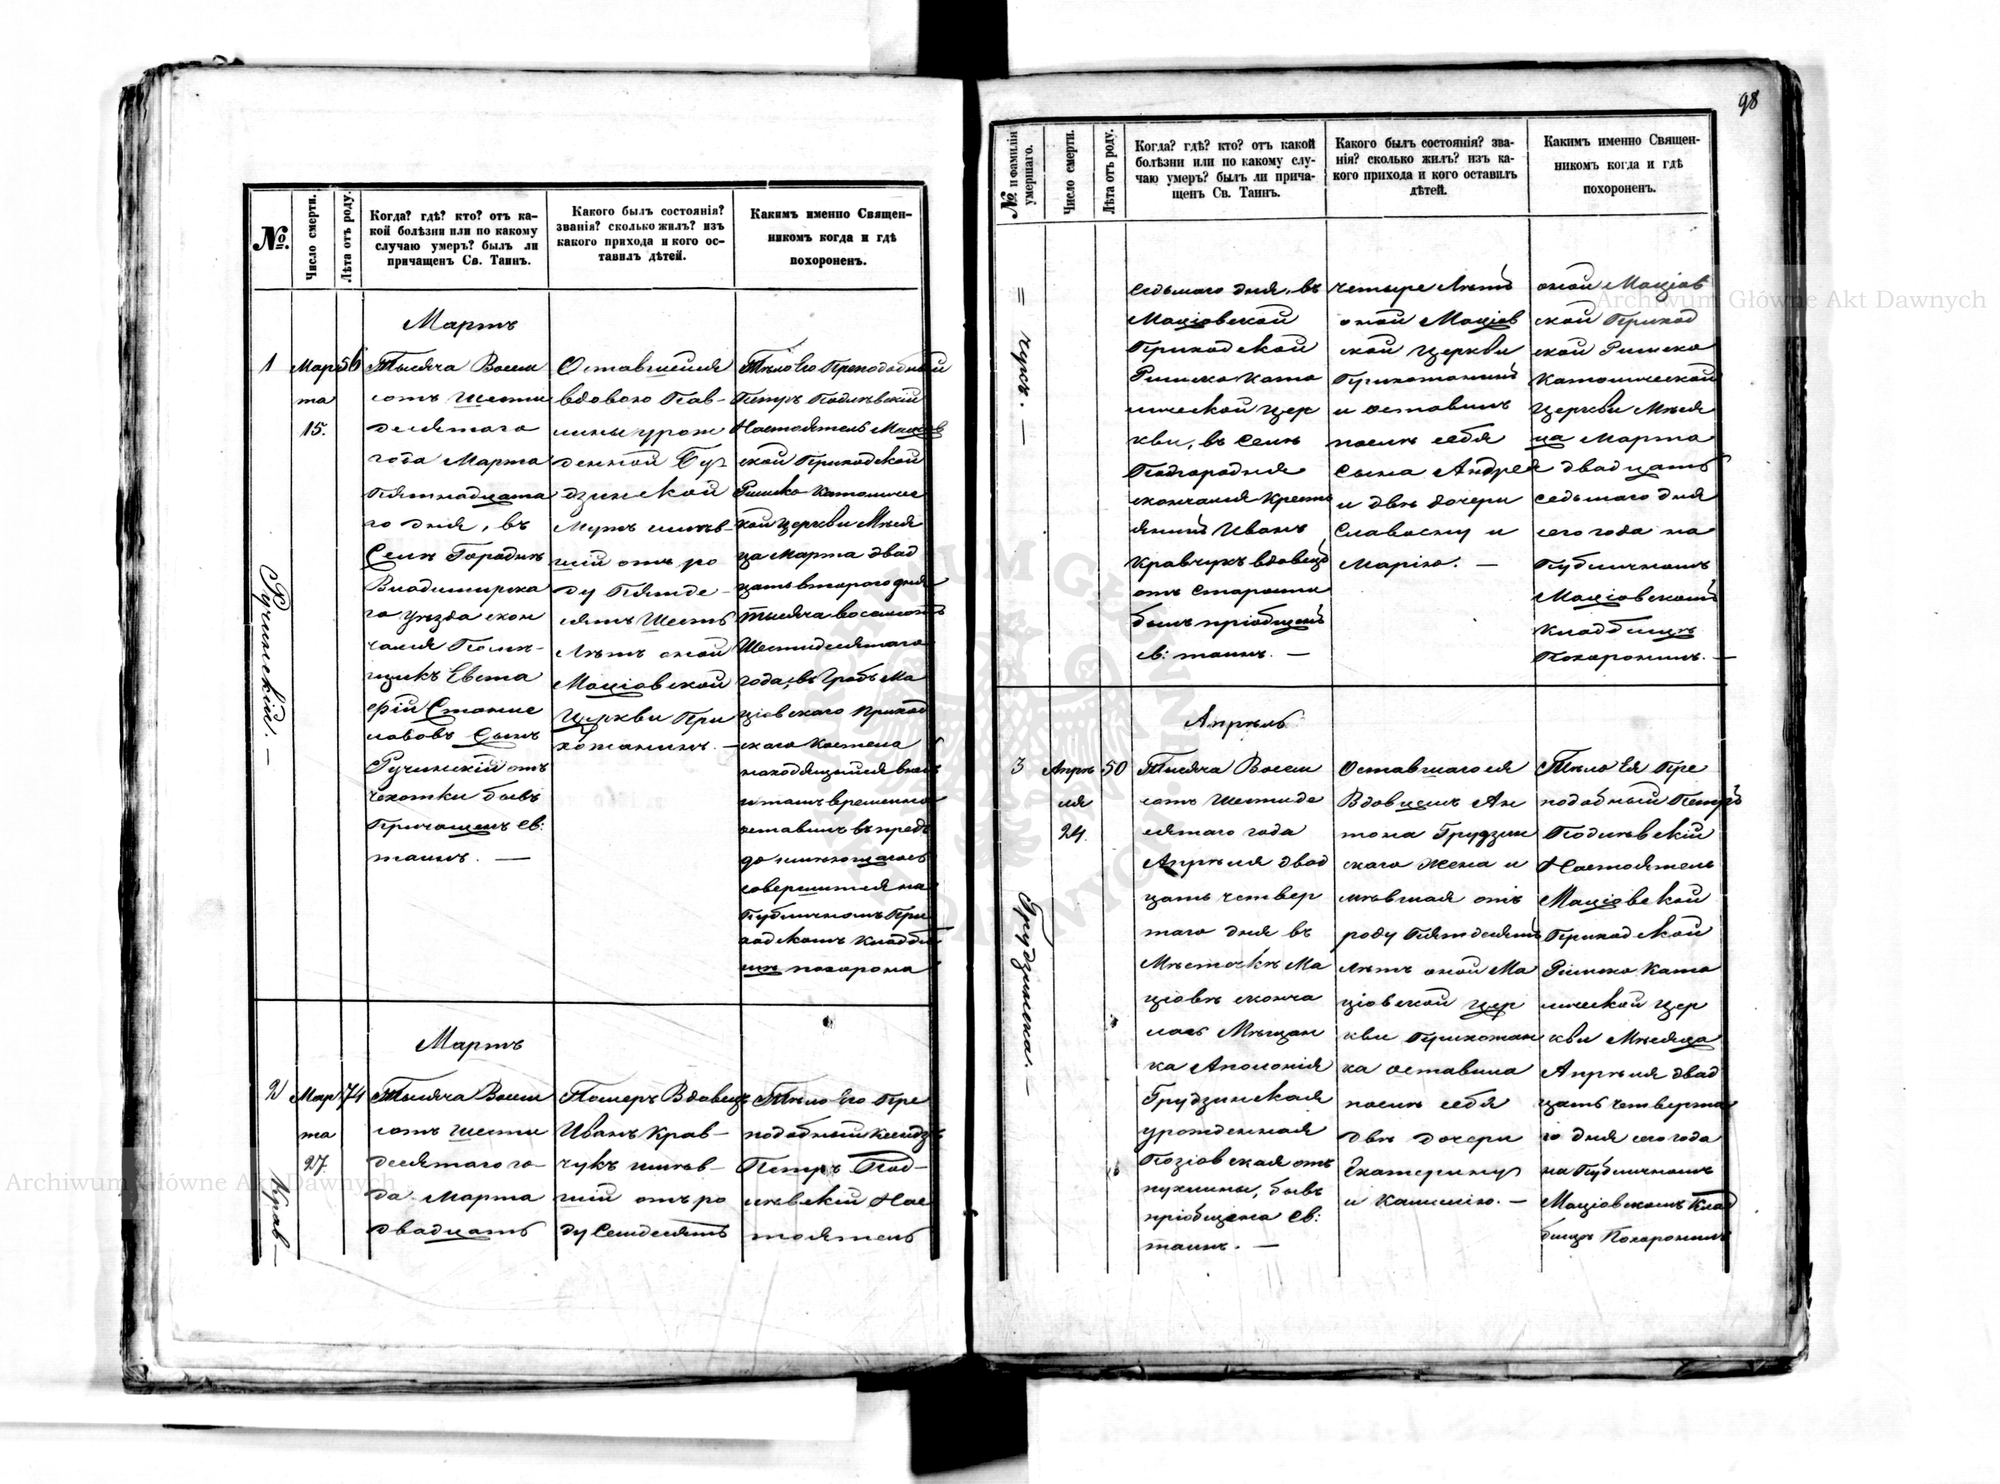 98
№.
Число смерти.
Лѣта отъ роду.
Когда? гдѣ? кто? отъ ка-
кой болѣзни или по какому
случаю умеръ? былъ ли
причащенъ Св. Таинъ.
Какого былъ состоянія?
званія? сколько жилъ? изъ
какого прихода и кого ос-
тавилъ дѣтей.
Какимъ именно Священ-
никомъ когда и гдѣ
похороненъ.
Мартъ
1
Ручинскій. —
Мар
та
15.
56
Тысяча Восем
сотъ шести
десятаго
года Марта
пятнадцата
го дня, въ
Селѣ Городнѣ
Владимирска
го уѣзда скон
чался Помѣ-
щикъ Евста
фій Станис
лавовъ Сынъ
Ручинскій отъ
чехотки бывъ
Причащенъ Св:
таинъ. —
Оставшейся
вдовою Пав-
лины урож
денной Бу
дзинской
Мужъ имѣв-
шій отъ ро
ду Пятьде-
сятъ Шесть
Лѣтъ оной
Маціовской
Церкви При
хожанинъ. —
Тѣло Его Преподобный
Петръ Подлѣвскій
Настоятель Маціов
ской Приходской
Римско Католичес
кой Церкви Мѣся
ца Марта двад
цать втораго дня
тысяча восемсотъ
Шестидесятаго
года, въ Гробъ Ма
ціовскаго Приход
скаго Костела
находящійся
и тамъ временно
оставилъ впредь
до имѣющагось
совершится на
Публичномъ При
ходскомъ Кладби
щѣ похорона
Мартъ
2
Крав—
Мар
та
27.
74
Тысяча Восем
сотъ шести
десятаго го-
да Марта
двадцать
Померъ Вдовецъ
Иванъ Крав-
чукъ имѣв-
шій отъ ро
ду Семдесятъ
Тѣло Его Пре
подобный Ксендзъ
Петръ Под-
лѣвскій Нас
тоятель
№ и фамилія
умершаго.
Число смерти.
Лѣта отъ роду.
Когда? гдѣ? кто? отъ какой
болѣзни или по какому слу-
чаю умеръ? былъ ли прича-
щенъ Св. Таинъ.
Какого былъ состоянія? зва-
нія? сколько жилъ? изъ ка-
кого прихода и кого оставилъ
дѣтей.
Какимъ именно Священ-
никомъ когда и гдѣ
похороненъ.
= чукъ. —
седьмаго дня, въ
Маціовской
Приходской
Римско Като
лической Цер
кви, въ Селѣ
Подгородня
скончался Кресть
янинъ Иванъ
Кравчукъ вдовецъ
отъ старости
бывъ пріобщенъ
св: таинъ. —
четыре Лѣтъ
оной Маціов
ской Церкви
Прихожанинъ
и оставилъ
послѣ себя
Сына Андрея
и двѣ дочери
Славосну и
Марію. —
оной Маціов
ской Приход
ской Римско
Католической
Церкви Мѣся
ца Марта
двадцать
седьмаго дня
сего года на
Публичномъ
Маціовскомъ
Кладбищѣ
Похоронилъ. —
Апрѣль
3
Грудзинска. —
Апрѣ
ля
24.
50
Тысяча Восем
сотъ шестиде
сятаго года
Апрѣля двад
цать четвер
таго дня въ
Мѣстечкѣ Ма
ціовѣ сконча
лась Мѣщан
ка Аполонія
Грудзинская
урожденная
Козіовская отъ
пухлины, бывъ
пріобщена Св:
таинъ. —
Оставшагося
Вдовцемъ Ан
тона Грудзин
скаго Жена и
мѣвшая отъ
роду Пятдесятъ
Лѣтъ оной Ма
ціовской Цер
кви Прихожан
ка оставила
послѣ себя
двѣ дочери
Екатерину
и Камилію. —
Тѣло Ея Пре
подобный Петръ
Подлѣвскій
Настоятель
Маціовской
Приходской
Римско Като
лической Цер
кви Мѣсяца
Апрѣля двад
цать четверта
го дня сего года
на Публичномъ
Маціовскомъ Клад
бищѣ Похоронилъ
Archiwum Główne Akt Dawnych
Archiwum Główne Akt Dawnych